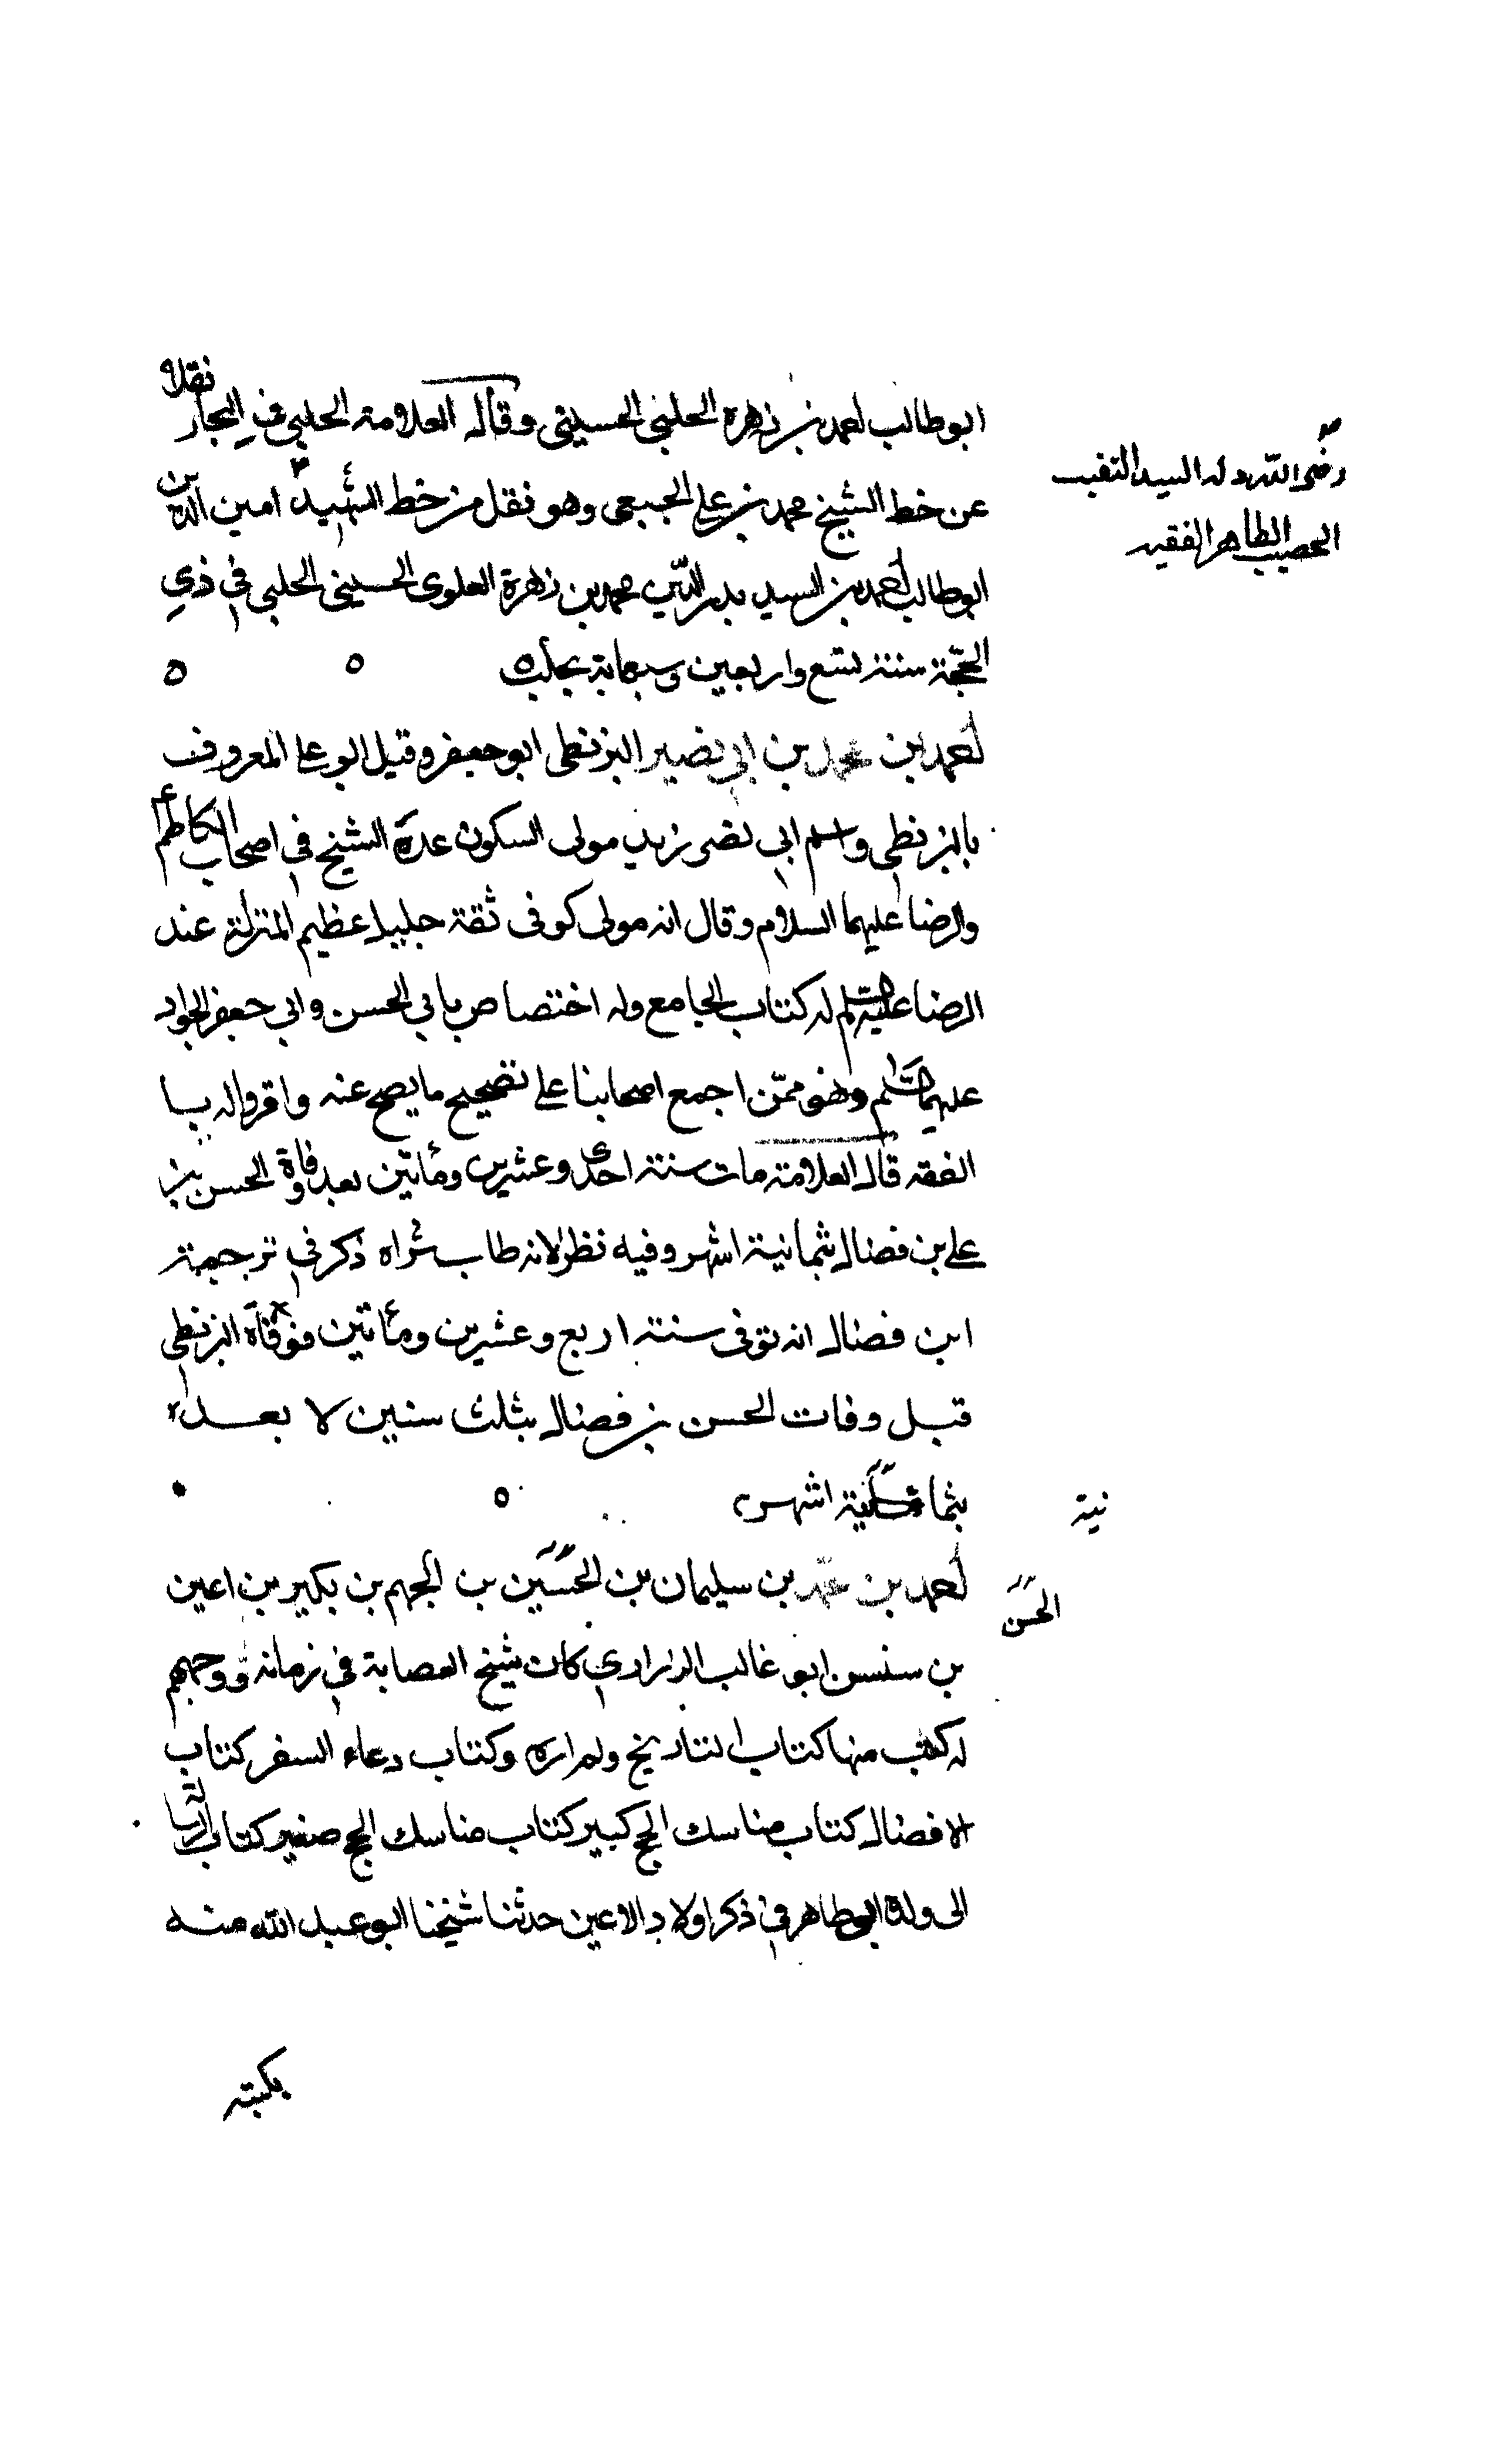 ابو طالب احمد بن زهرة الحلبي الحسيني وقال العلامة الحلبي في البحار نقلا
عن خط الشيخ محمد بن علي الجبعي وهو نقل من خط الشهيد امين الدين
ابو طالب احمد بن السيد بدر الدين محمد بن زهرة العلوي الحسيني الحلبي في ذي
الحجة سنة تسع واربعين وسبعماية بحلب
رضي الله ولد السيد النقيب
الحسيب الطاهر الفقيه
احمد بن محمد بن ابي نصير البزنطي ابو جعفر وقيل ابو علي المعروف
بالبزنطي واسم ابي نصر زيد مولى السكون عده الشيخ في اصحاب الكاظم
والرضا عليهما السلام وقال انه مولى كوفي ثقة جليل عظيم المنزلة عند
الرضا عليه السلم له كتاب الجامع وله اختصاص بابي الحسن وابي جعفر الجواد
عليهما السلم وهو ممّن اجمع اصحابنا على تصحيح ما يصح عنه واقروا له با
الفقه قال العلامة مات سنة احدى وعشرين ومأتين بعد وفاة الحسن بن
علي بن فضال بثمانية اشهر وفيه نظر لانه طاب ثراه ذكر في ترجمة
ابن فضال انه توفى سنة اربع وعشرين ومأتين فوفاة البزنطي
قبل وفات الحسن بن فضال بثلث سنين لا بعده
بثمانية اشهر
نية
احمد بن محمد بن سليمان بن الحسين بن الجهم بن بكير بن اعين
الحسن
بن سنسن ابو غالب الزراري كان شيخ العصابة في زمانه ووجههم
له كتب منها كتاب التاريخ ولم اره وكتاب دعاء السفر كتاب
الافضال كتاب مناسك الحج كبير كتاب مناسك الحج صغير كتاب الرسالة
الى ولده ابو طاهر في ذكر اولاد الاعين حدثنا شيخنا ابو عبد الله منه
بكتبه